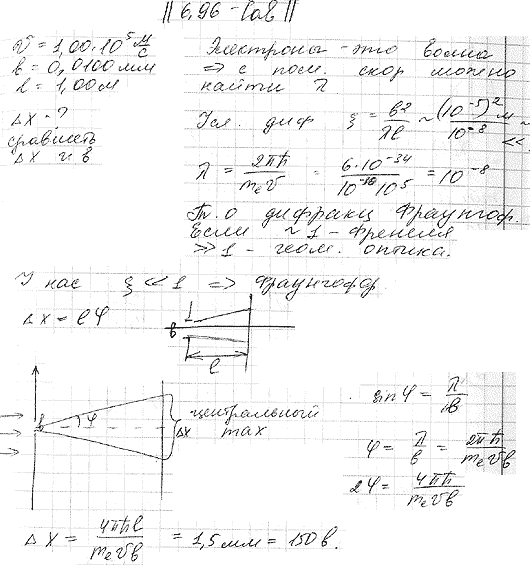 || 6.96 - Сав ||
v = 1,00·10⁵ м/с
b = 0,0100 мм
l = 1,00 м
Δx - ?
сравнить
Δx и b
Электроны - это волна
=> с пом. скор можно
найти λ
Усл. диф ξ = b²/λl ~ (10⁻⁵)² м/10⁻⁸ ~ <<
λ = 2πħ/mₑv = 6·10⁻³⁴/10⁻³⁰10⁵ = 10⁻⁸
Т.о дифракц Фраунгоф.
Если ~ 1 - Френеля
>> 1 - геом. оптика.
У нас ξ << 1 => Фраунгофор
Δx = lφ
b
l
b
φ
Δx
центральный
max
sin φ = λ/b
φ = λ/b = 2πħ/mₑvb
2φ = 4πħ/mₑvb
Δx = 4πħl/mₑvb = 1,5 мм = 150 b.